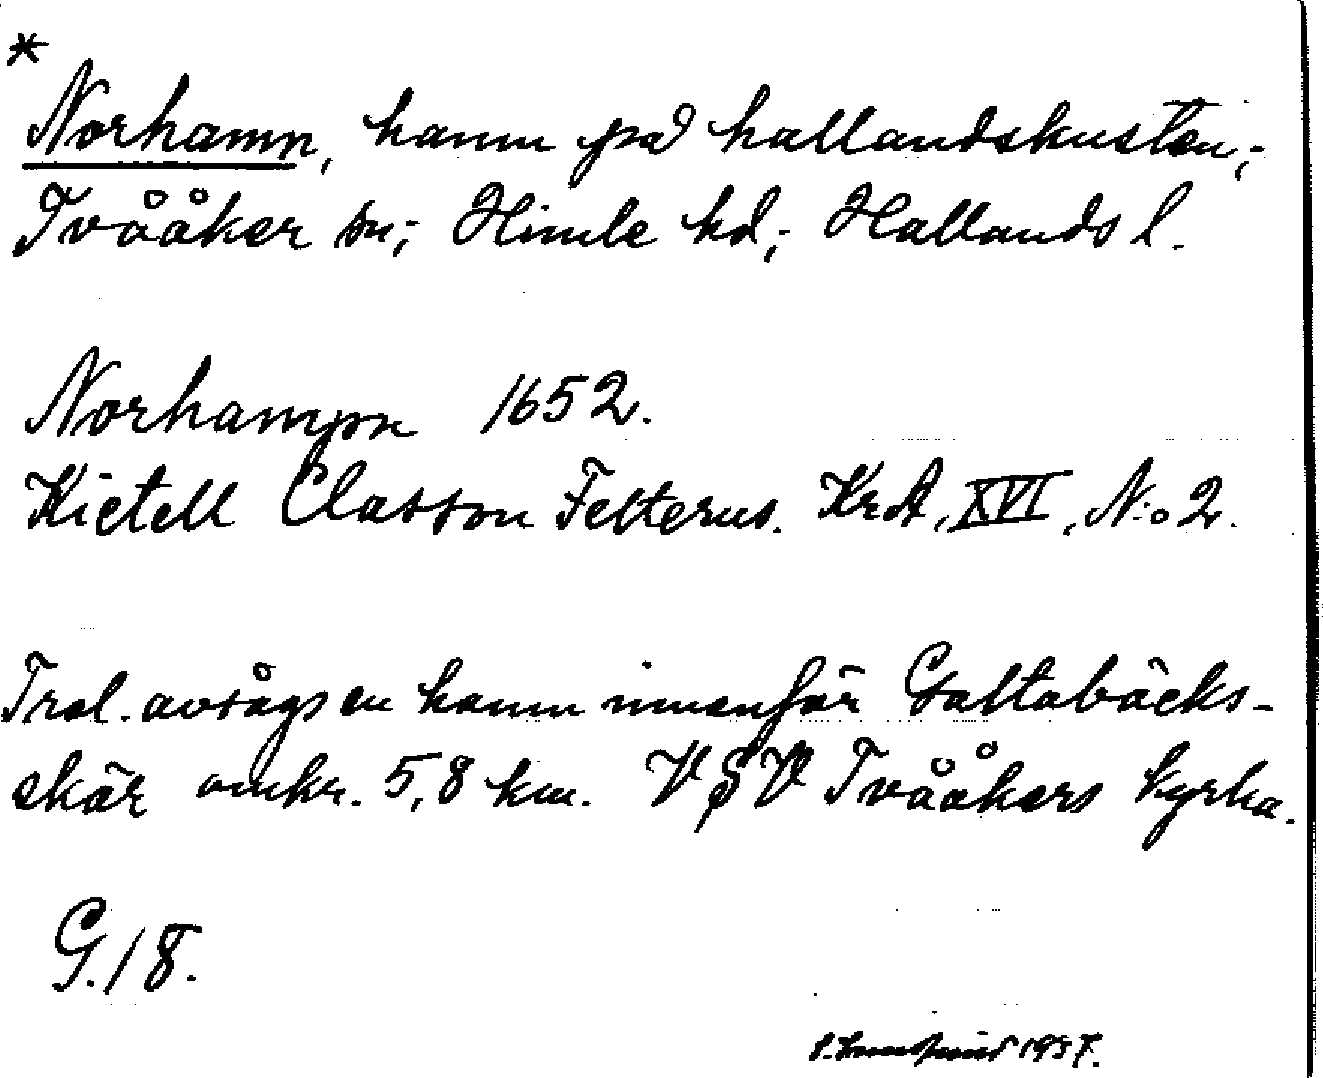 *
Norhamn, hamn på hallandskusten;
Tvååker sn; Himle hd; Hallands l.
Norhampn 1652.
Kietell Classon Felterus. KrA, XVI, N:o 2.
Trol. avsågs en hamn innanför Galtabäcks-
skär omkr. 5,8 km. V S V Tvååkers kyrka.
G. 18.
1937.